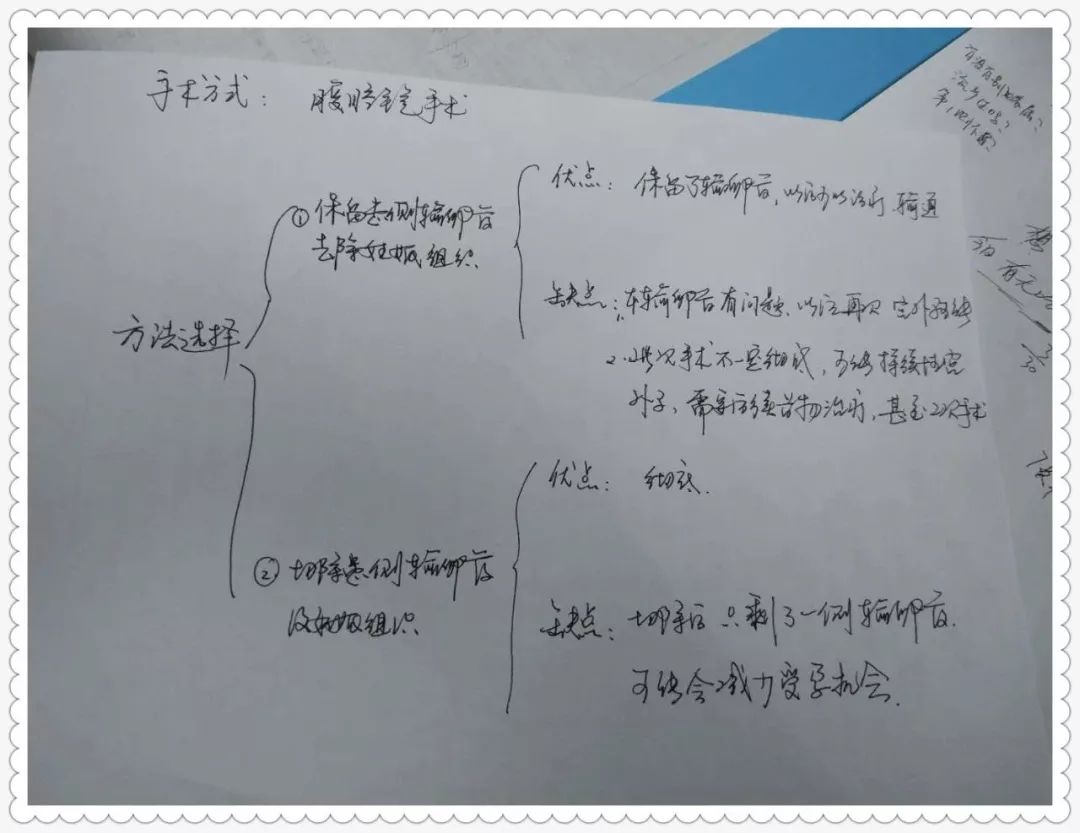 手术方式: 腹腔镜手术
方法选择
① 保留患侧输卵管
去除妊娠组织
优点: 保留了输卵管,以后可以治疗 输通
缺点: 1.输卵管有问题、以后再次 宫外孕
2.此次手术不一定彻底,可能持续性宫
外孕,需要后续药物治疗,甚至2次手术
② 切除患侧输卵管
及妊娠组织
优点: 彻底.
缺点: 切除后 只剩了一侧输卵管.
可能会减少受孕机会.
有无